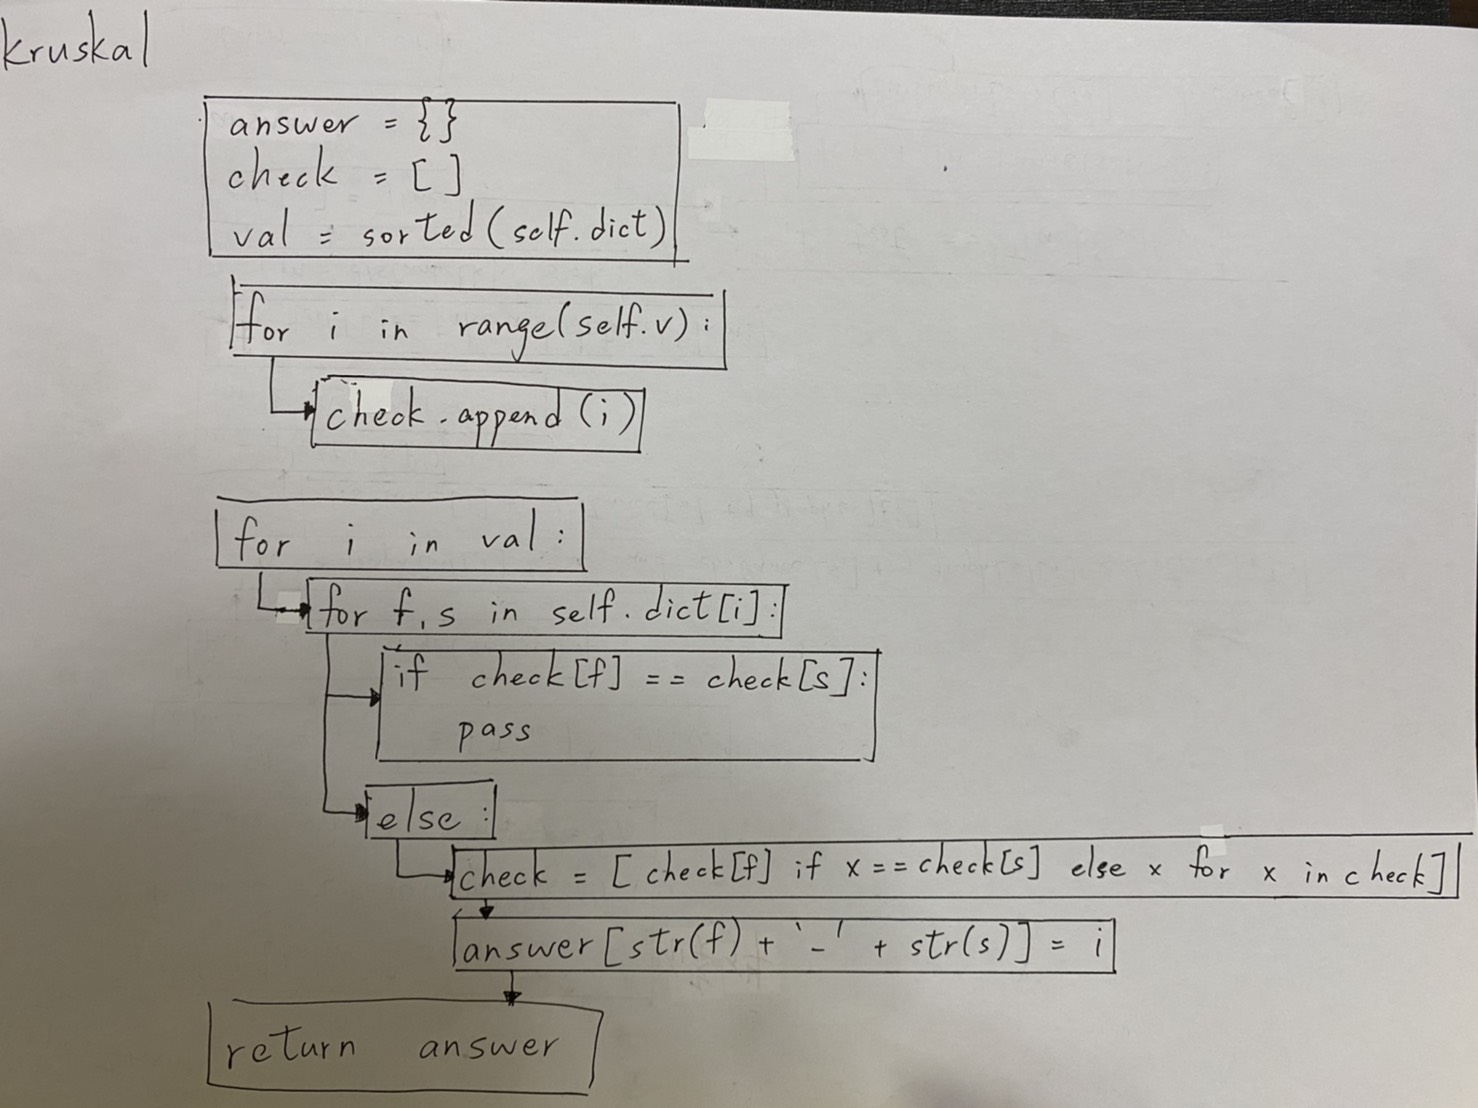 kruskal
answer = {}
check = []
val = sorted(self.dict)
for i in range(self.v):
check.append(i)
for i in val:
for f,s in self.dict[i]:
if check[f] == check[s]:
pass
else:
check = [check[f] if x==check[s] else x for x in check]
answer[str(f)+'-'+str(s)] = i
return answer